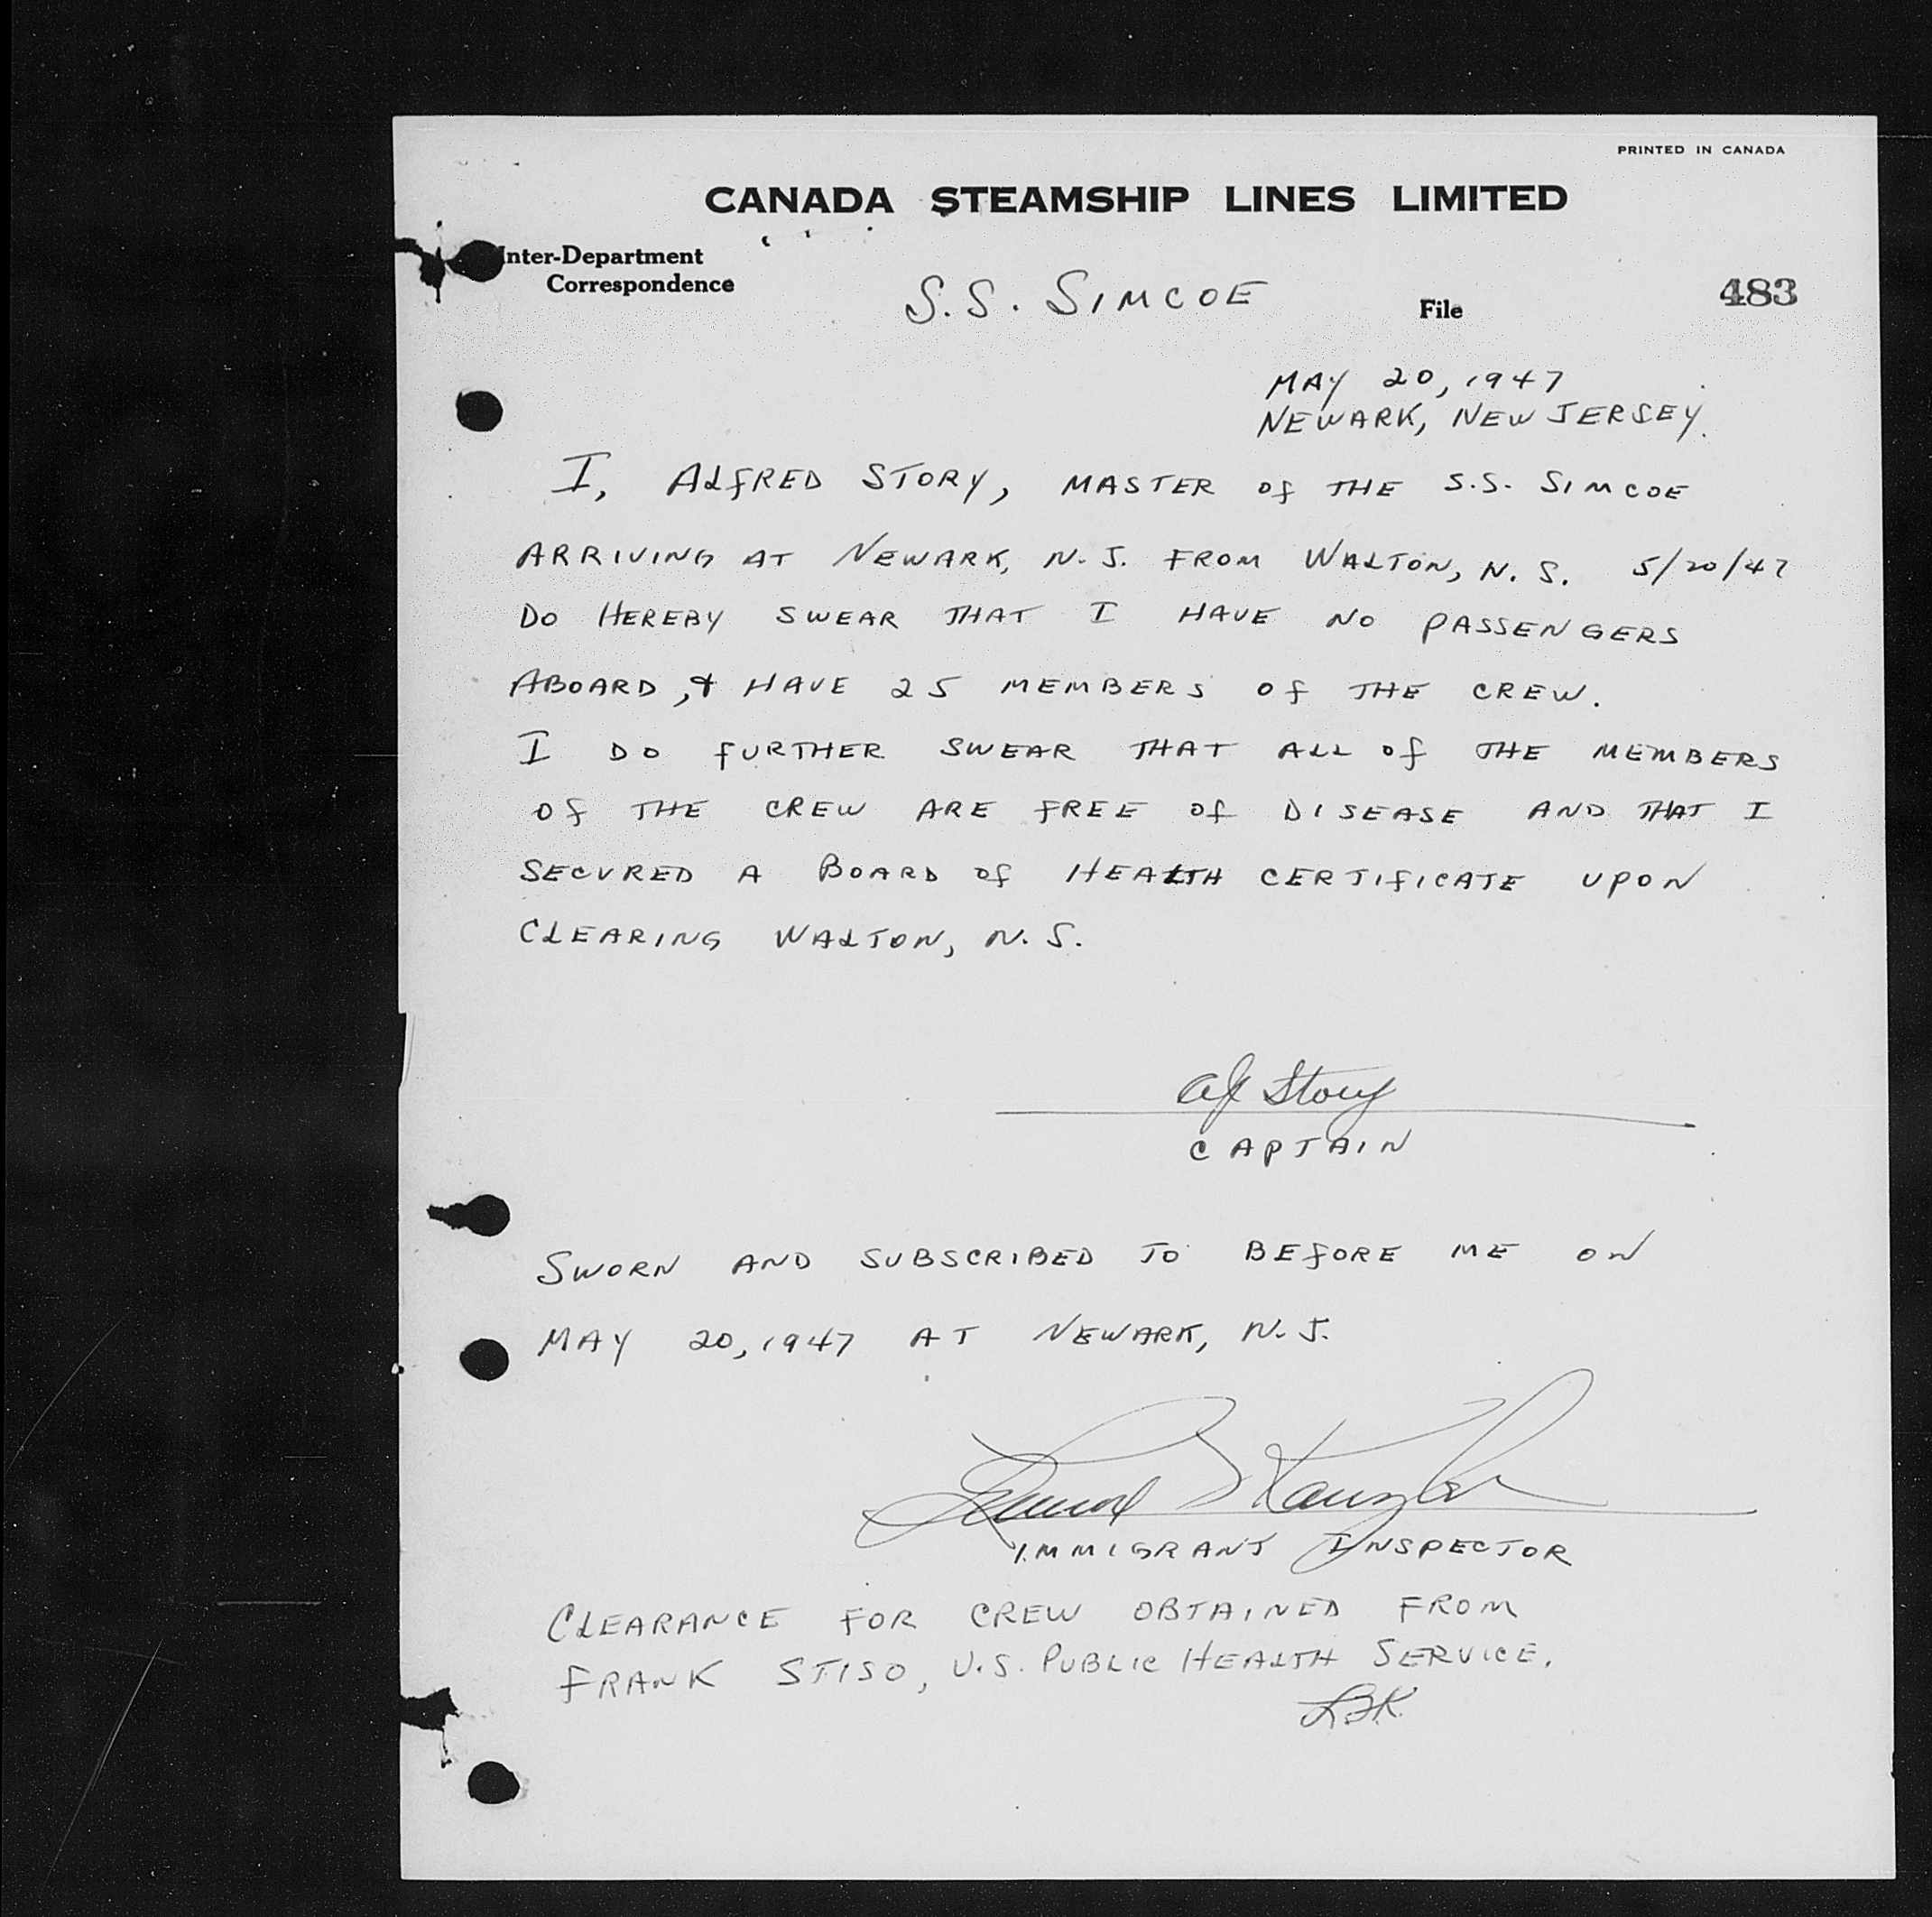 PRINTED IN CANADA
CANADA STEAMSHIP LINES LIMITED
Inter-Department
Correspondence
S.S. SIMCOE
File
483
MAY 20, 1947
NEWARK, NEW JERSEY.
I, ALFRED STORY, MASTER OF THE S.S. SIMCOE
ARRIVING AT NEWARK, N.J. FROM WALTON, N.S. 5/20/47
DO HEREBY SWEAR THAT I HAVE NO PASSENGERS
ABOARD, & HAVE 25 MEMBERS OF THE CREW.
I DO FURTHER SWEAR THAT ALL OF THE MEMBERS
OF THE CREW ARE FREE OF DISEASE AND THAT I
SECURED A BOARD OF HEALTH CERTIFICATE UPON
CLEARING WALTON, N.S.
Alf Story
CAPTAIN
SWORN AND SUBSCRIBED TO BEFORE ME ON
MAY 20, 1947 AT NEWARK, N.J.
IMMIGRANT INSPECTOR
CLEARANCE FOR CREW OBTAINED FROM
FRANK STISO, U.S. PUBLIC HEALTH SERVICE.
LBK.